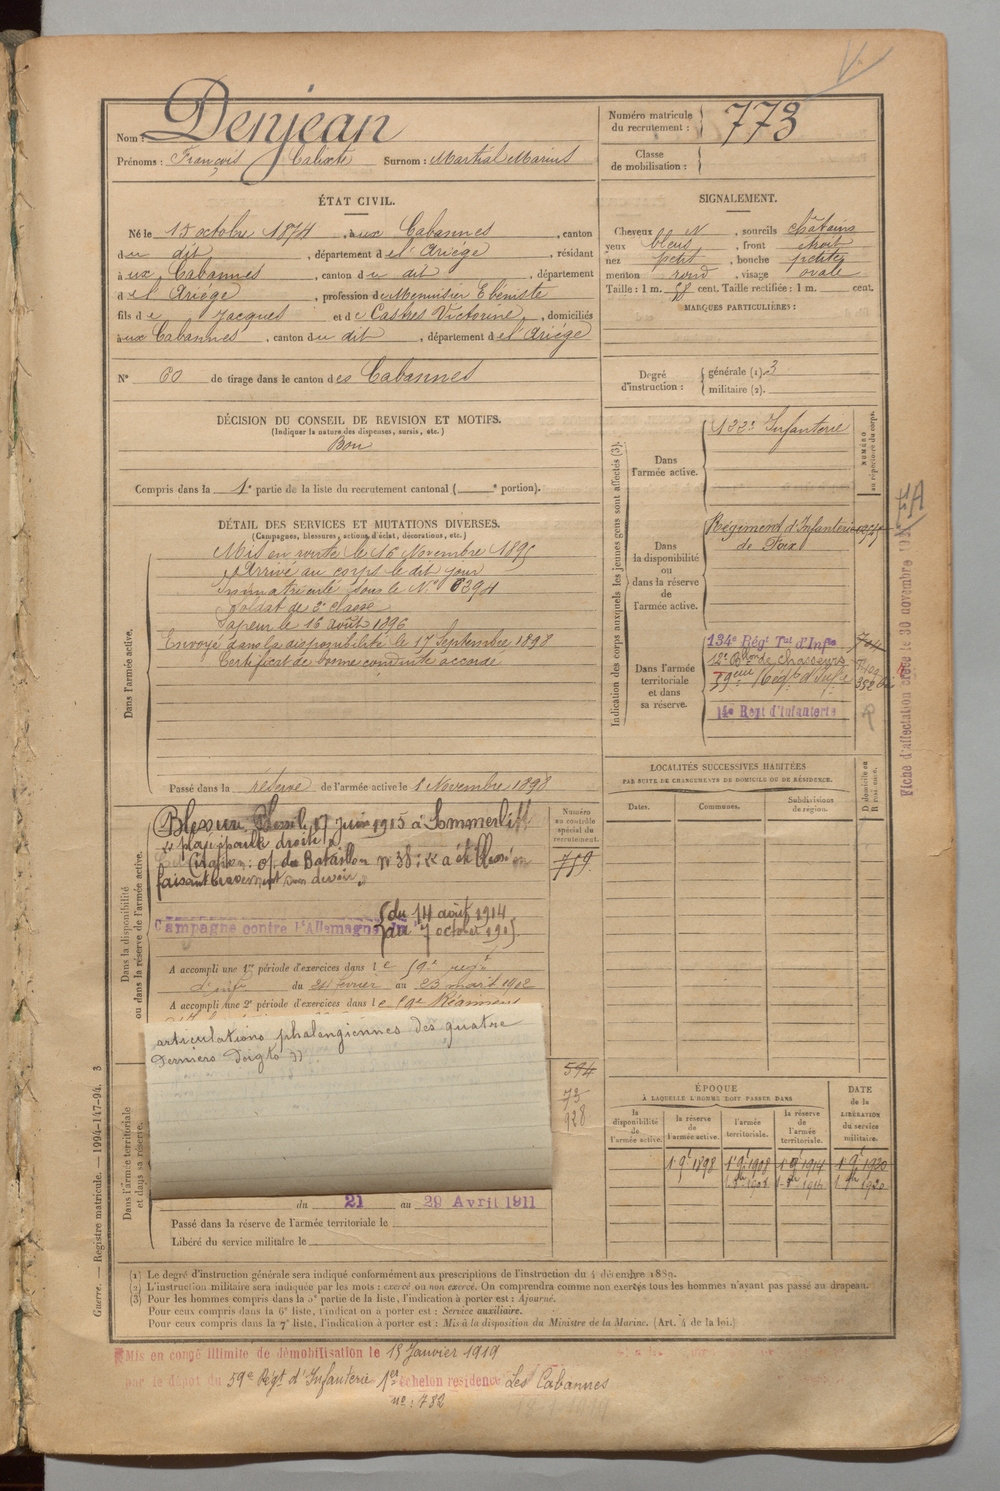 Nom : Denjean
Prénoms : François Calixte Surnom : Martial Marius
Numéro matricule du recrutement : 773
Classe de mobilisation :
ÉTAT CIVIL.
Né le 15 octobre 1874, à ux Cabannes, canton
du dit, département de l'Ariège, résidant
à ux Cabannes, canton du dit, département
de l'Ariège, profession de Menuisier Ebéniste
fils de Jacques et de Castres Victorine, domiciliés
à ux Cabannes, canton du dit, département de l'Ariège
N° 60 de tirage dans le canton des Cabannes
SIGNALEMENT.
Cheveux N, sourcils châtains
yeux bleus, front étroit
nez petit, bouche petite
menton rond, visage ovale
Taille : 1 m. 58 cent. Taille rectifiée : 1 m. cent.
MARQUES PARTICULIÈRES :
Degré d'instruction : générale (1). 3
militaire (2).
DÉCISION DU CONSEIL DE REVISION ET MOTIFS.
(Indiquer la nature des dispenses, sursis, etc.)
Bon
Compris dans la 1e partie de la liste du recrutement cantonal ( e portion).
DÉTAIL DES SERVICES ET MUTATIONS DIVERSES.
(Campagnes, blessures, actions d'éclat, décorations, etc.)
Dans l'armée active.
Mis en route le 16 Novembre 1895
Arrivé au corps le dit jour
Immatriculé sous le N° 6394
Soldat de 2e classe
Sapeur le 16 août 1896
Envoyé dans la disponibilité le 17 Septembre 1898
Certificat de bonne conduite accordé
Passé dans la réserve de l'armée active le 1 Novembre 1898
Indication des corps auxquels les jeunes gens sont affectés (3).
NUMÉRO au répertoire du corps.
Dans l'armée active.
122e Infanterie
Dans la disponibilité ou dans la réserve de l'armée active.
Régiment d'Infanterie
de Foix
Dans l'armée territoriale et dans sa réserve.
134e Régt Tal d'Infie
12e Bon de Chasseurs
59eme Régt d'Infie
14e Regt d'Infanterie
Fiche d'affectation créée le 30 novembre
FA
LOCALITÉS SUCCESSIVES HABITÉES
PAR SUITE DE CHANGEMENTS DE DOMICILE OU DE RÉSIDENCE.
Dates. Communes. Subdivisions de région. D domicile ou R résidence.
Numéro au contrôle spécial du recrutement.
759
Dans la disponibilité ou dans la réserve de l'armée active.
17 juin 1915 à Sommerlitt
plaie épaule droite
Citation : o/. du Bataillon n° 38 : a été blessé en
faisant bravement son devoir
Campagne contre l'Allemagne
du 14 août 1914
au 7 octobre 1915.
A accompli une 1re période d'exercices dans le 59e régt
d'infie du au 23 mars 1902
A accompli une 2e période d'exercices dans le Régiment
articulations phalangiennes des quatre
derniers doigts »
Dans l'armée territoriale et dans sa réserve.
594
73
928
du 21 au 29 Avril 1911
Passé dans la réserve de l'armée territoriale le
Libéré du service militaire le
ÉPOQUE
À LAQUELLE L'HOMME DOIT PASSER DANS
la disponibilité de l'armée active. la réserve de l'armée active. l'armée territoriale. la réserve de l'armée territoriale. DATE de la LIBÉRATION du service militaire.
1 9e 1898 1 9e 1908 1 9e 1914 1 9e 1920
(1) Le degré d'instruction générale sera indiqué conformément aux prescriptions de l'instruction du 4 décembre 1889.
(2) L'instruction militaire sera indiquée par les mots : exercé ou non exercé. On comprendra comme non exercés tous les hommes n'ayant pas passé au drapeau.
(3) Pour les hommes compris dans la 5e partie de la liste, l'indication à porter est : Ajourné.
Pour ceux compris dans la 6e liste, l'indication à porter est : Service auxiliaire.
Pour ceux compris dans la 7e liste, l'indication à porter est : Mis à la disposition du Ministre de la Marine. (Art. 4 de la loi.)
Guerre. — Registre matricule. — 1994-147-94. 3
Mis en congé illimité de démobilisation le 18 Janvier 1919
par le dépôt du 59e Régt d'Infanterie 1er échelon residence Les Cabannes
n° : 782